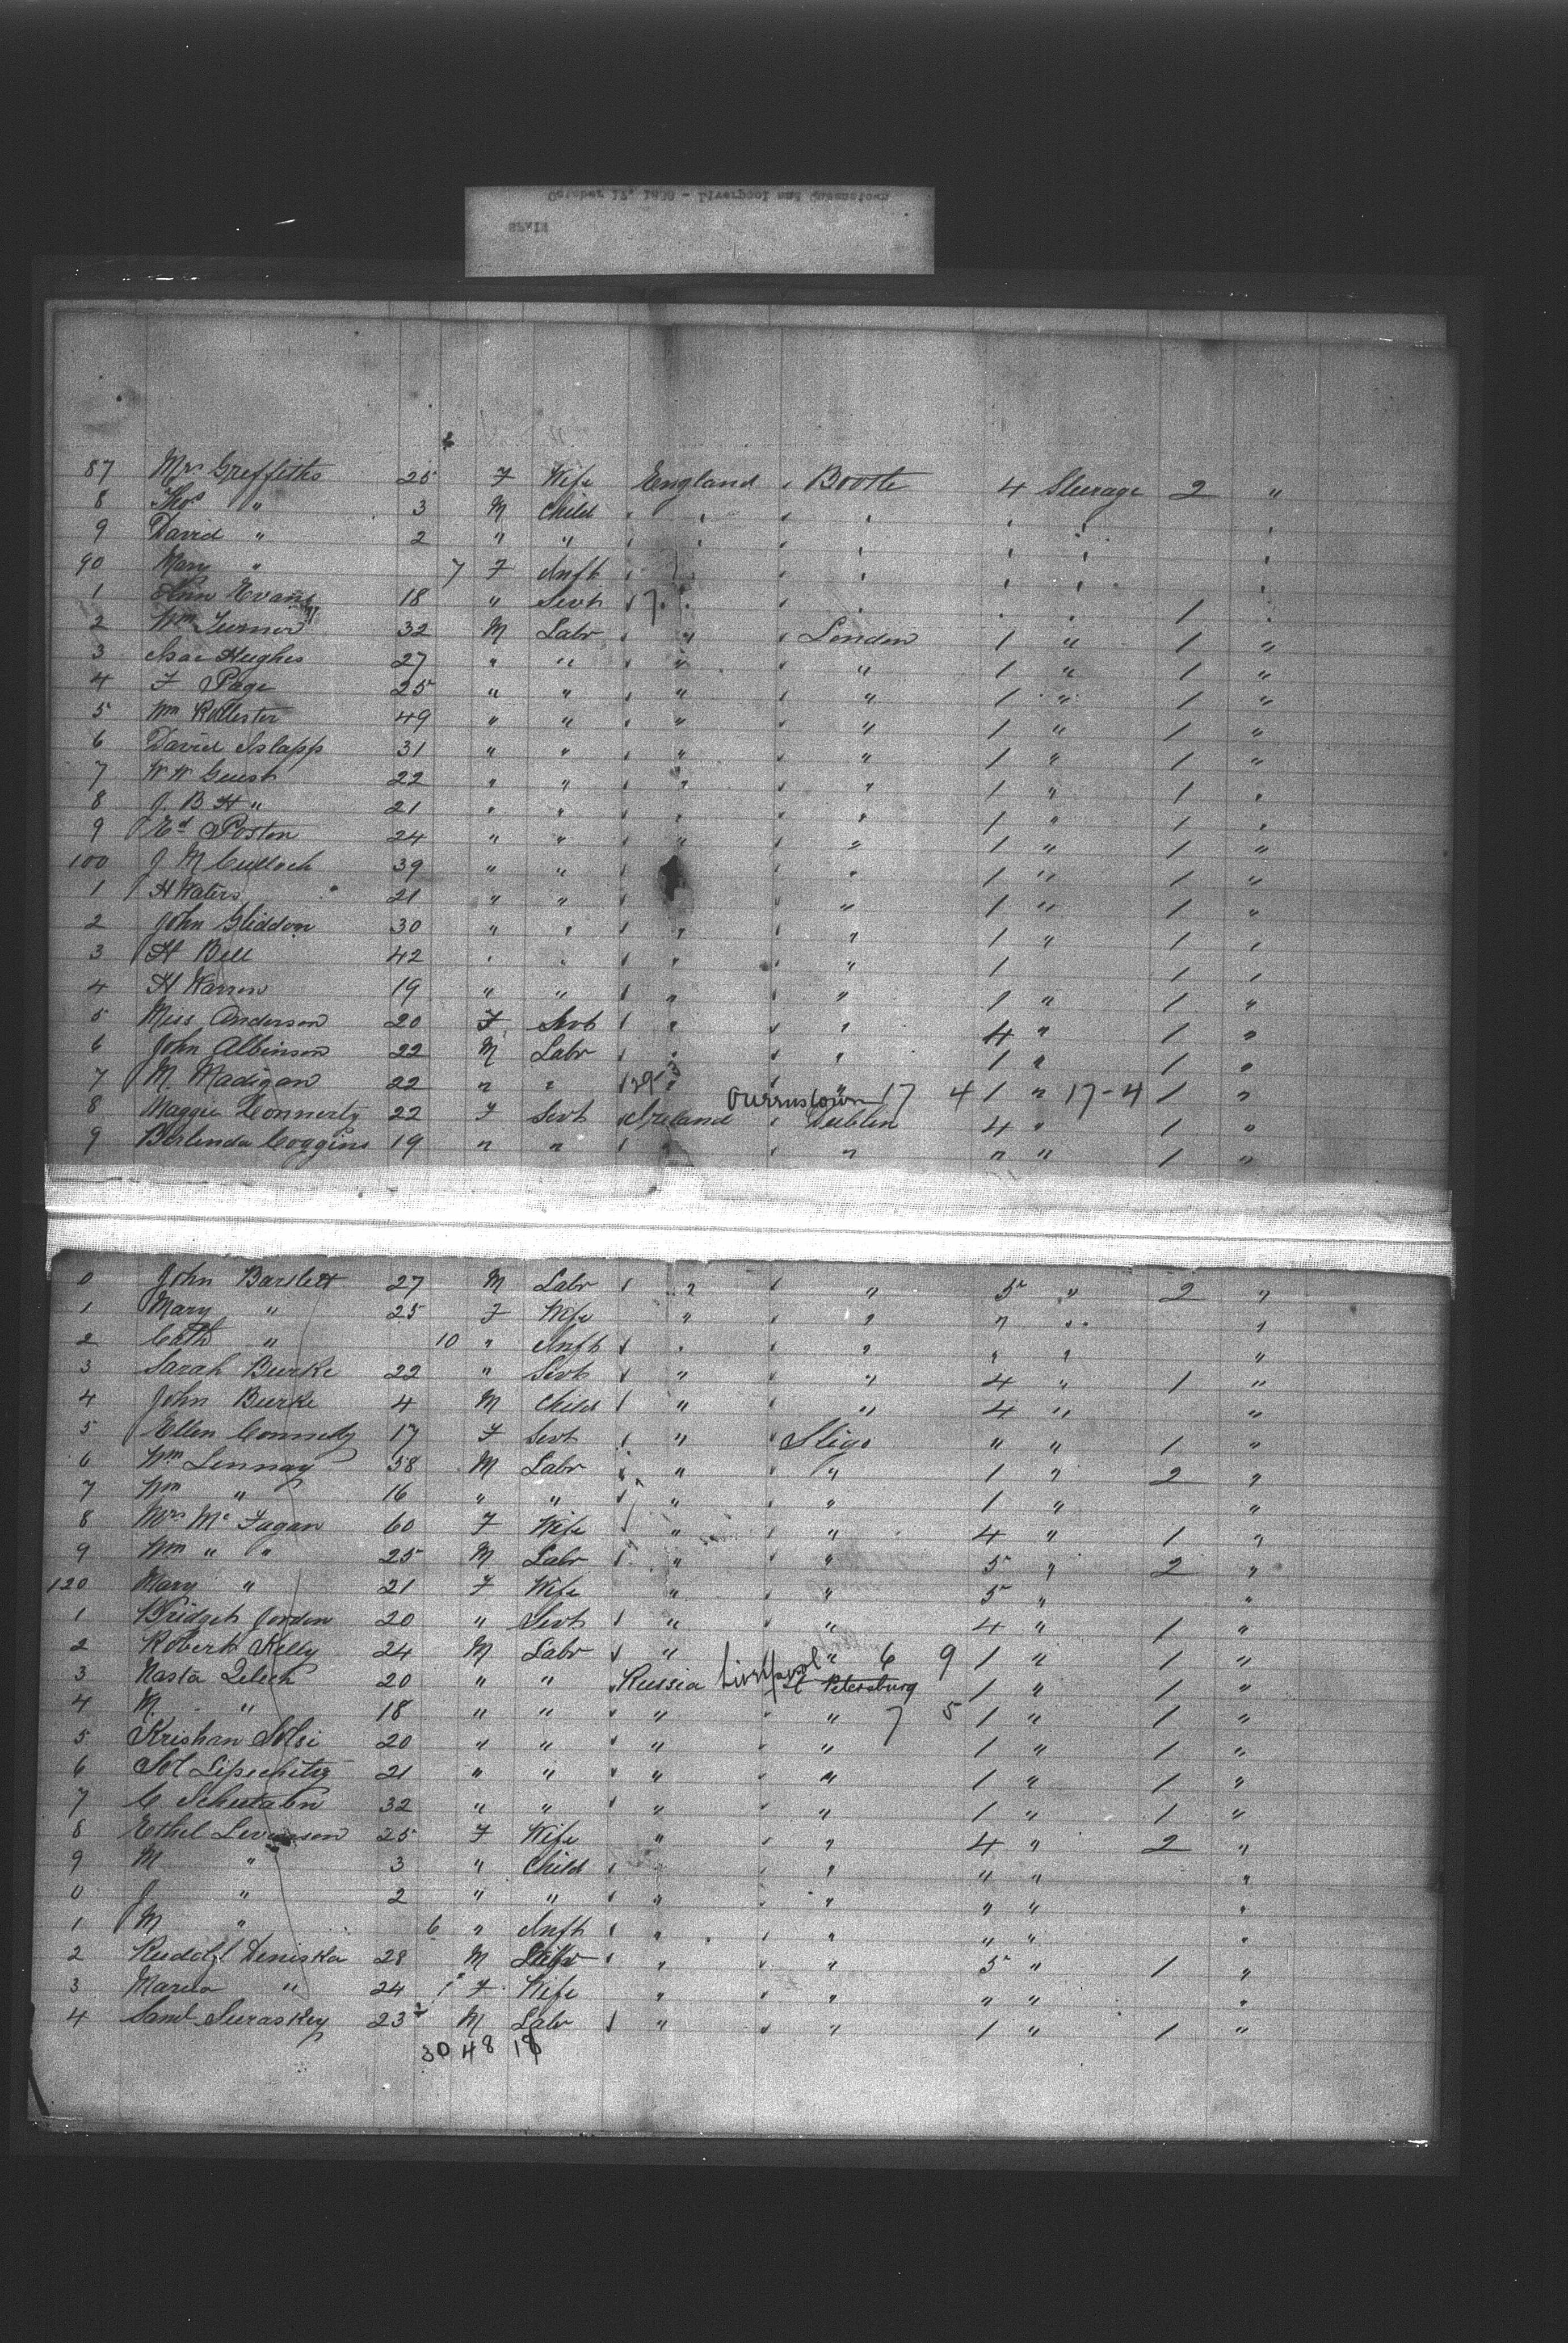 October 17, 1890 - Liverpool and Queenstown
SPAIN
87 Mrs Griffiths 25 F Wife England Bootle 4 Steerage 2 "
8 Thos " 3 M Child
9 David " 2 " "
90 Mary " 7 F Inft
1 Ann Evans 18 " Servt 1
2 Wm Turner 32 M Labr " London 1 " 1 "
3 Isac Hughes 27 " " " " 1 " 1 "
4 F Page 25 " " " " 1 " 1 "
5 Wm Rollester 49 " " " " 1 " 1 "
6 David 31 " " " " 1 " 1 "
7 W W Guest 22 " " " " 1 " 1 "
8 J. B H " 21 " " " " 1 " 1 "
9 Ed Poston 24 " " " " 1 " 1 "
100 J McCulloch 39 " " " 1 " 1 "
1 H Waters 21 " " " 1 " 1 "
2 John Gliddon 30 " " " " 1 " 1 "
3 H Bell 42 " " " " 1 1 "
4 H Warren 19 " " " " 1 " 1 "
5 Miss Anderson 20 F Servt " " 4 " 1 "
6 John Albinson 22 M Labr " " 1 " 1 "
7 M. Madigan 22 " " " " 1 " 1 "
Queenstown 17 4 17-4
8 Maggie Connerty 22 F Servt Ireland Dublin 4 " 1 "
9 Berlinda Coggins 19 " " " " " " 1 "
0 John Bartlett 27 M Labr " " 5 " 2 "
1 Mary " 25 F Wife " " " " "
2 Cath " 10 " Inft " " " " "
3 Sarah Burke 22 " Servt " " 4 " 1 "
4 John Burke 4 M Child " " 4 " "
5 Ellen Connelly 17 F Servt " Sligo " " 1 "
6 Wm Lennay 58 M Labr " " 1 " 2 "
7 Wm " 16 " " " " 1 " "
8 Mrs Mc Fagan 60 F Wife " " 4 " 1 "
9 Wm " " 25 M Labr " " 5 " 2 "
120 Mary " 21 F Wife " " 5 " "
1 Bridget Jordon 20 " Servt " " 4 " 1 "
2 Robert Kelly 24 M Labr " " 1 " 1 "
Liverpool 6 9
3 Nasta 20 " " Russia St Petersburg 1 " 1 "
4 M. " 18 " " " " 7 5 1 " 1 "
5 Krishan 20 " " " " 1 " 1 "
6 Sol Lipschitz 21 " " " " 1 " 1 "
7 C 32 " " " " 1 " 1 "
8 Ethel Levinson 25 F Wife " " 4 " 2 "
9 M " 3 " Child " " " " "
0 J " 2 " " " " " " "
1 M " 6 " Inft " " " " "
2 Rudolf Deniska 28 M " " 5 " 1 "
3 Maria " 24 F Wife " " " " "
4 Saml Suraskey 23 M Labr " " 1 " 1 "
30 48 18